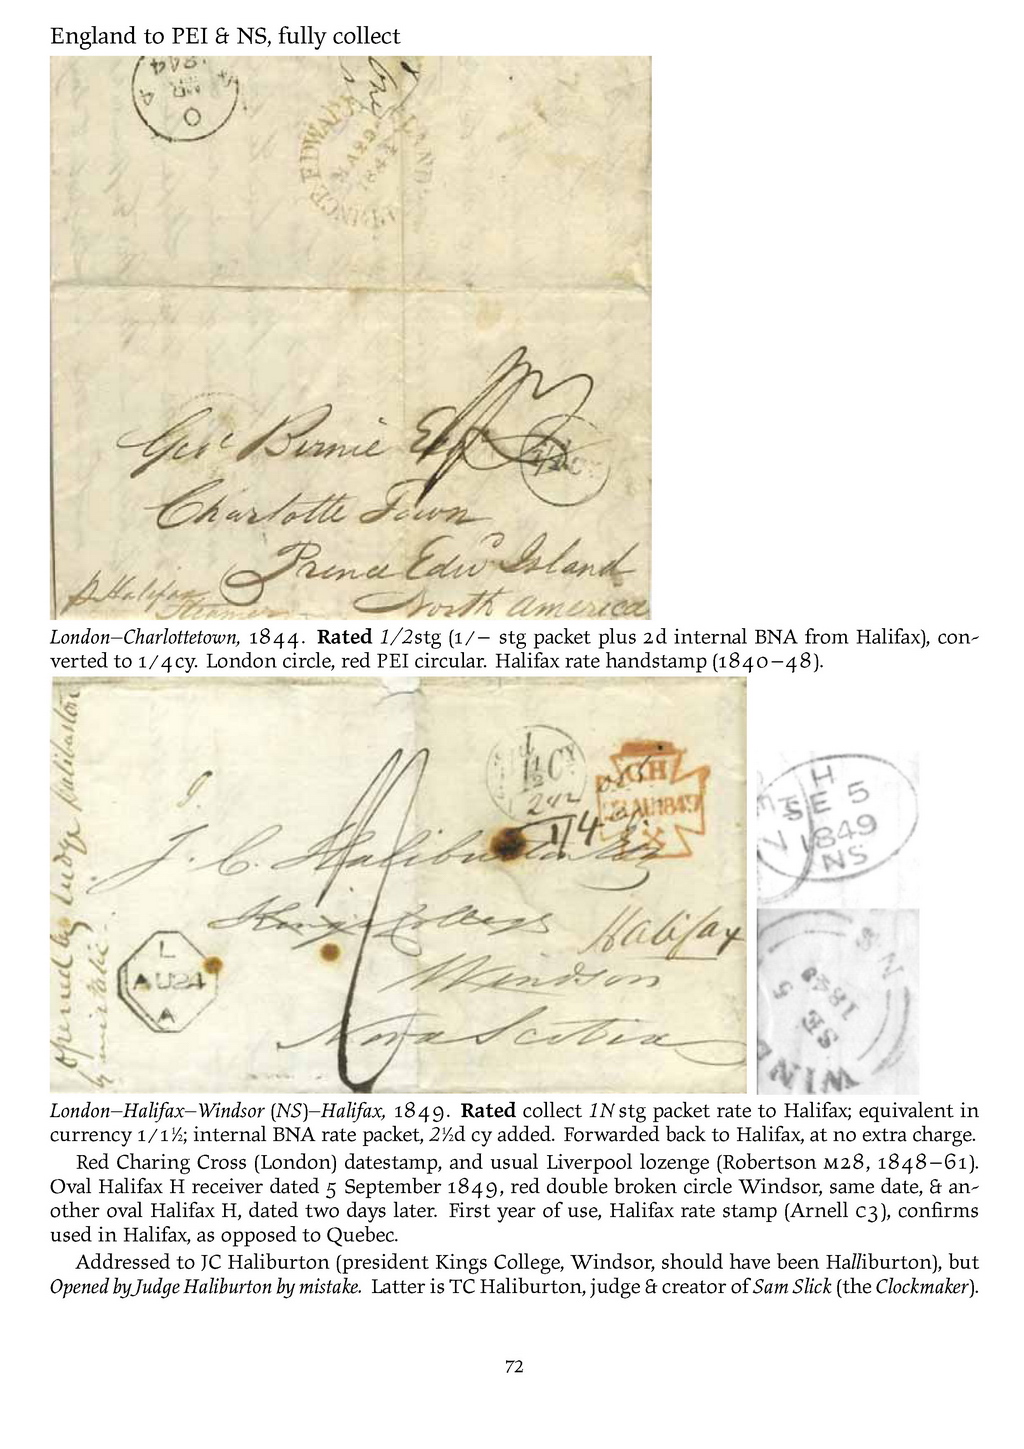 England to PEI & NS, fully collect
1844
MR
4
O
PRINCE EDWARD ISLAND
MA29
184
Geoe Birnie Esqr
Charlotte Town
Prince Edwd Island
North America
p Halifax
Steamer
London–Charlottetown, 1844. Rated 1/2stg (1/– stg packet plus 2d internal BNA from Halifax), con-
verted to 1/4cy. London circle, red PEI circular. Halifax rate handstamp (1840–48).
opened by Judge Haliburton
by mistake
1½ Cy
2½
1/4
CH
AU 1849
X
J. C. Haliburton Esq
Kings College
Halifax
Windsor
Nova Scotia
L
AU24
A
H
SE 5
1849
NS
N S
1849
SE
5
WIND
London–Halifax–Windsor (NS)–Halifax, 1849. Rated collect 1N stg packet rate to Halifax; equivalent in
currency 1/1½; internal BNA rate packet, 2½d cy added. Forwarded back to Halifax, at no extra charge.
Red Charing Cross (London) datestamp, and usual Liverpool lozenge (Robertson M28, 1848–61).
Oval Halifax H receiver dated 5 September 1849, red double broken circle Windsor, same date, & an-
other oval Halifax H, dated two days later. First year of use, Halifax rate stamp (Arnell C3), confirms
used in Halifax, as opposed to Quebec.
Addressed to JC Haliburton (president Kings College, Windsor, should have been Halliburton), but
Opened by Judge Haliburton by mistake. Latter is TC Haliburton, judge & creator of Sam Slick (the Clockmaker).
72